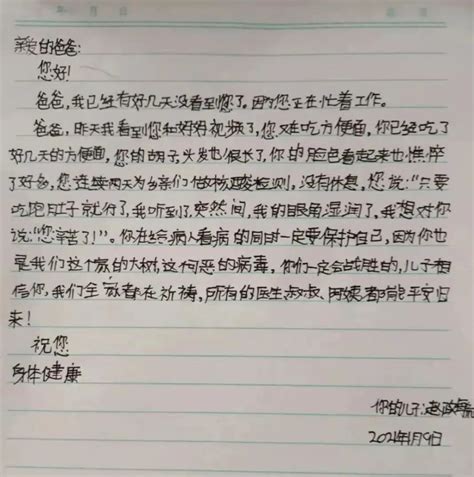 亲爱的爸爸:
您好!
爸爸,我已经有好几天没看到您了。因为您正在忙着工作。
爸爸,昨天我看到您和妈妈视频了,您又在吃方便面,你已经吃了
好几天的方便面,您的胡子,头发也很长了,你的脸色看起来也憔悴
了好多,您连续两天为乡亲们做核酸检测,没有休息,您说:"只要
吃饱肚子就行了,我听到了突然间,我的眼角湿润了,我想对你
说:"您辛苦了!"。你在给病人看病的同时一定要保护自己,因为你也
是我们这个家的大树,这可恶的病毒,你们一定会战胜的,儿子相
信你,我们全家都在祈祷,所有的医生叔叔、阿姨都能平安归
来!
祝您
身体健康
你的儿子:赵政
2021年1月9日